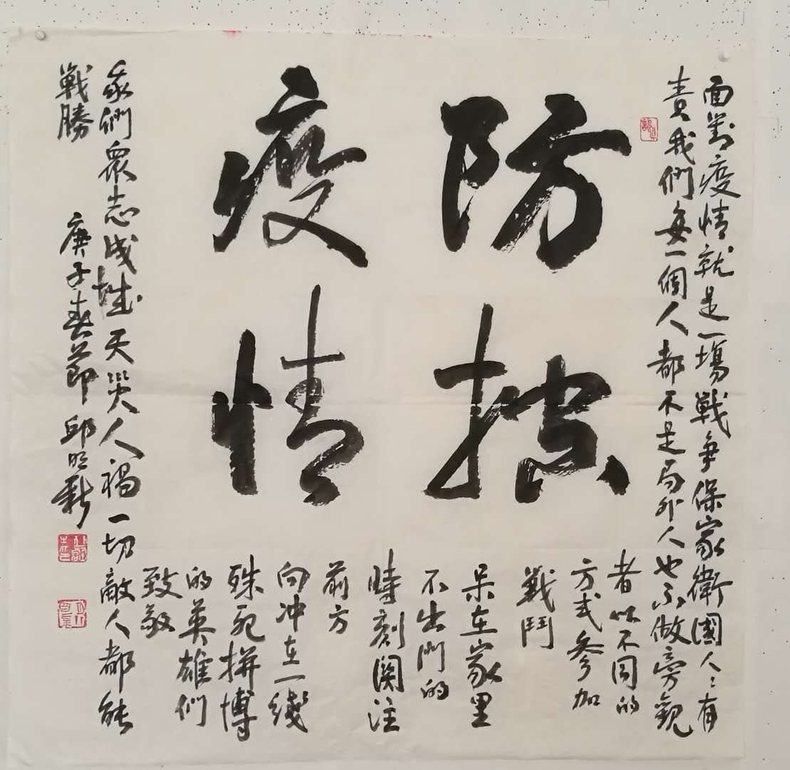 防控
疫情
面對疫情就是一場戰爭保家衛國人々有
責我們每一個人都不是局外人也不做旁觀
者以不同的
方式參加
戰鬥
呆在家里
不出門的
時刻関注
前方
向冲在一綫
殊死拼博
的英雄們
致敬
我們衆志成城天災人禍一切敵人都能
戰勝
庚子春節邱